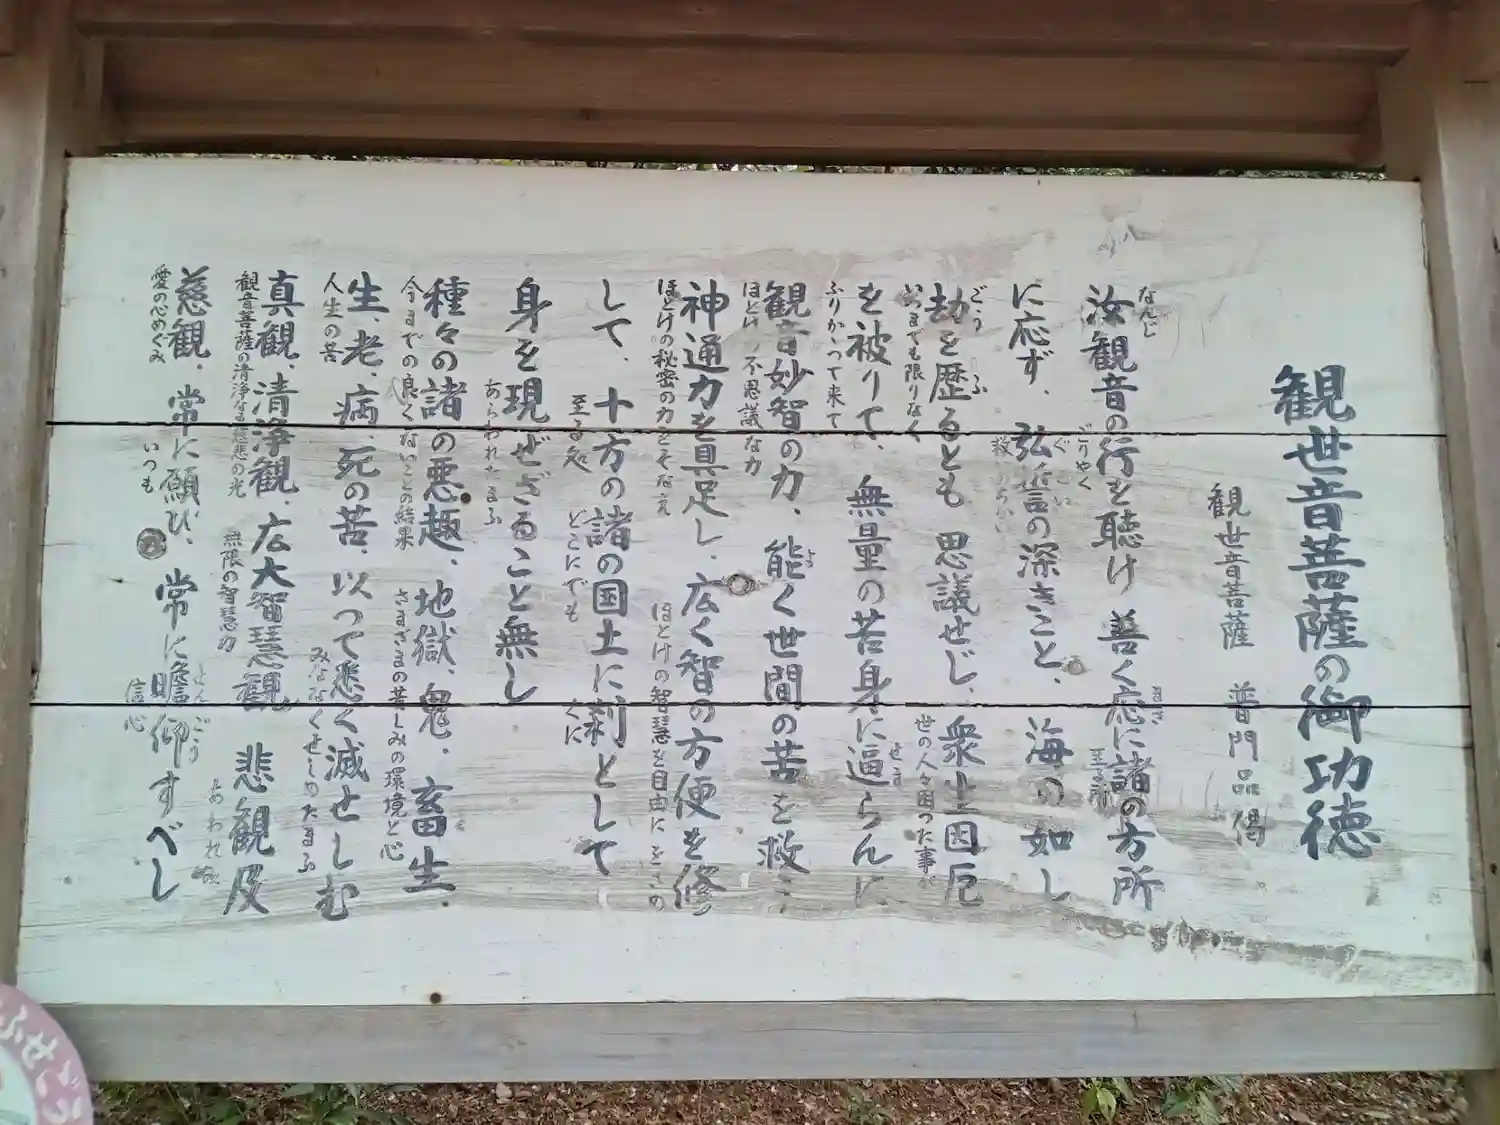 観世音菩薩の御功徳
観世音菩薩 普門品偈
なんじ ごりやく
汝観音の行を聴け 善く応に諸の方所
至る所
に応ず、弘誓の深きこと、海の如し
ぐ せい
救いのちかい
ごう ふ
劫を歴るとも 思議せじ、衆生困厄
いつまでも限りなく 世の人々困った事が
を被りて、無量の苦身に逼らんに
せま
ふりかかって来て
観音妙智の力、能く世間の苦を救
よ
ほとけの不思議な力
神通力を具足し、広く智の方便を修
ほとけの秘密の力をそなえ ほとけの智慧を自由におさめ
して、十方の諸の国土に刹として
至る処 どこにでも くに
身を現ぜざること無し
あらわれたまふ
種々の諸の悪趣、地獄、鬼、畜生、
今までの良くないことの結果 さまざまの苦しみの環境と心
生、老、病、死の苦、以って悉く滅せしむ
人生の苦 みななくせしめたまふ
真観、清浄観、広大智慧観 悲観及
観音菩薩の清浄なる慈悲の光 無限の智慧力 あわれ
慈観、常に願ひ、常に瞻仰すべし
せん ごう
愛の心めぐみ いつも 信心
ふせごう